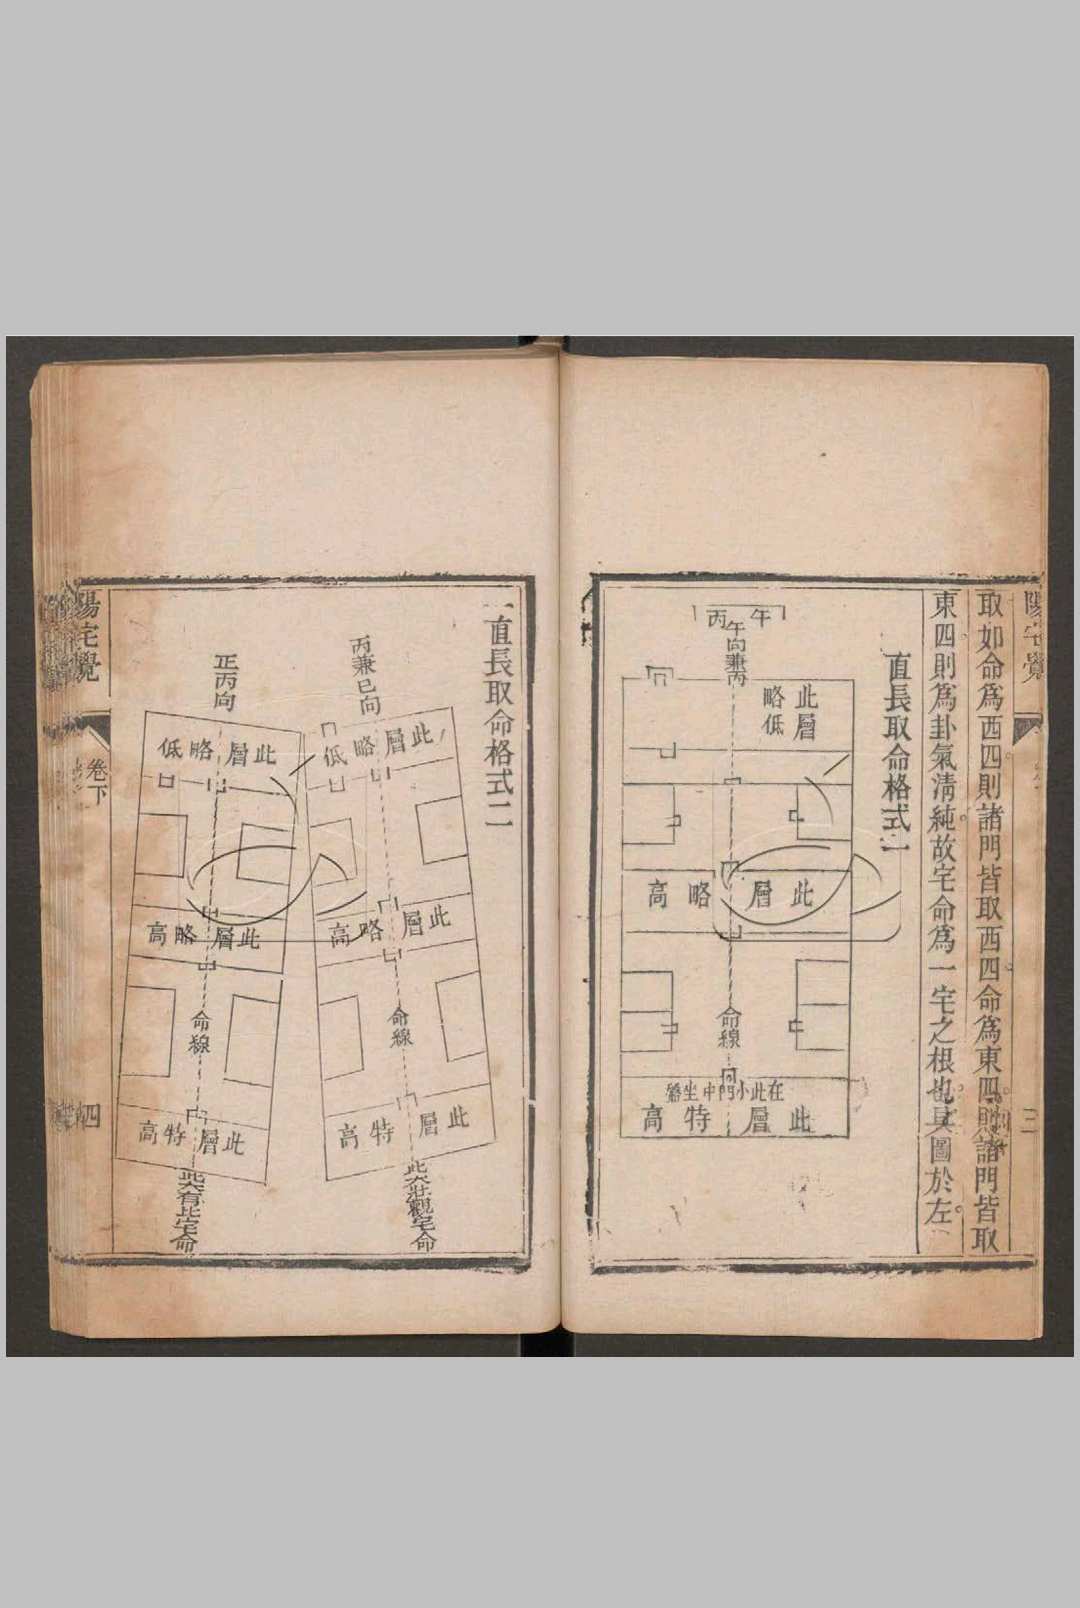 陽宅覺
三
取如命爲西四則諸門皆取西四命爲東四則諸門皆取
東四則爲卦氣清純故宅命爲一宅之根也具圖於左
直長取命格式一
午
丙
午向兼丙
此層略低
此層略高
命線
在此小門中坐
此層特高
一直長取命格式二
丙兼巳向
此層略低
此層略高
命線
此層特高
此大壯觀宅命
正丙向
此層略低
此層略高
命線
此層特高
此大有比宅命
陽宅覺
卷下
四